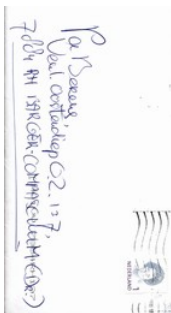 Pa Berens,
Veul. Oosterdiep O.Z. 127,
7884 AH BARGER-COMPASCUUM (Dr.)
NEDERLAND